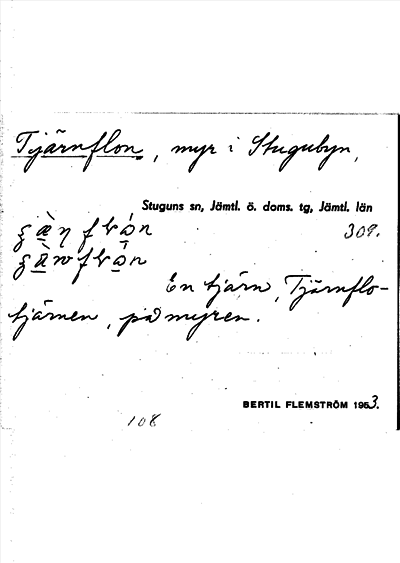 Tjärnflon, myr i Stugubyn,
Stuguns sn, Jämtl. ö. doms. tg, Jämtl. län
309.
En tjärn, Tjärnflo-
tjärnen, på myren.
BERTIL FLEMSTRÖM 1953.
108